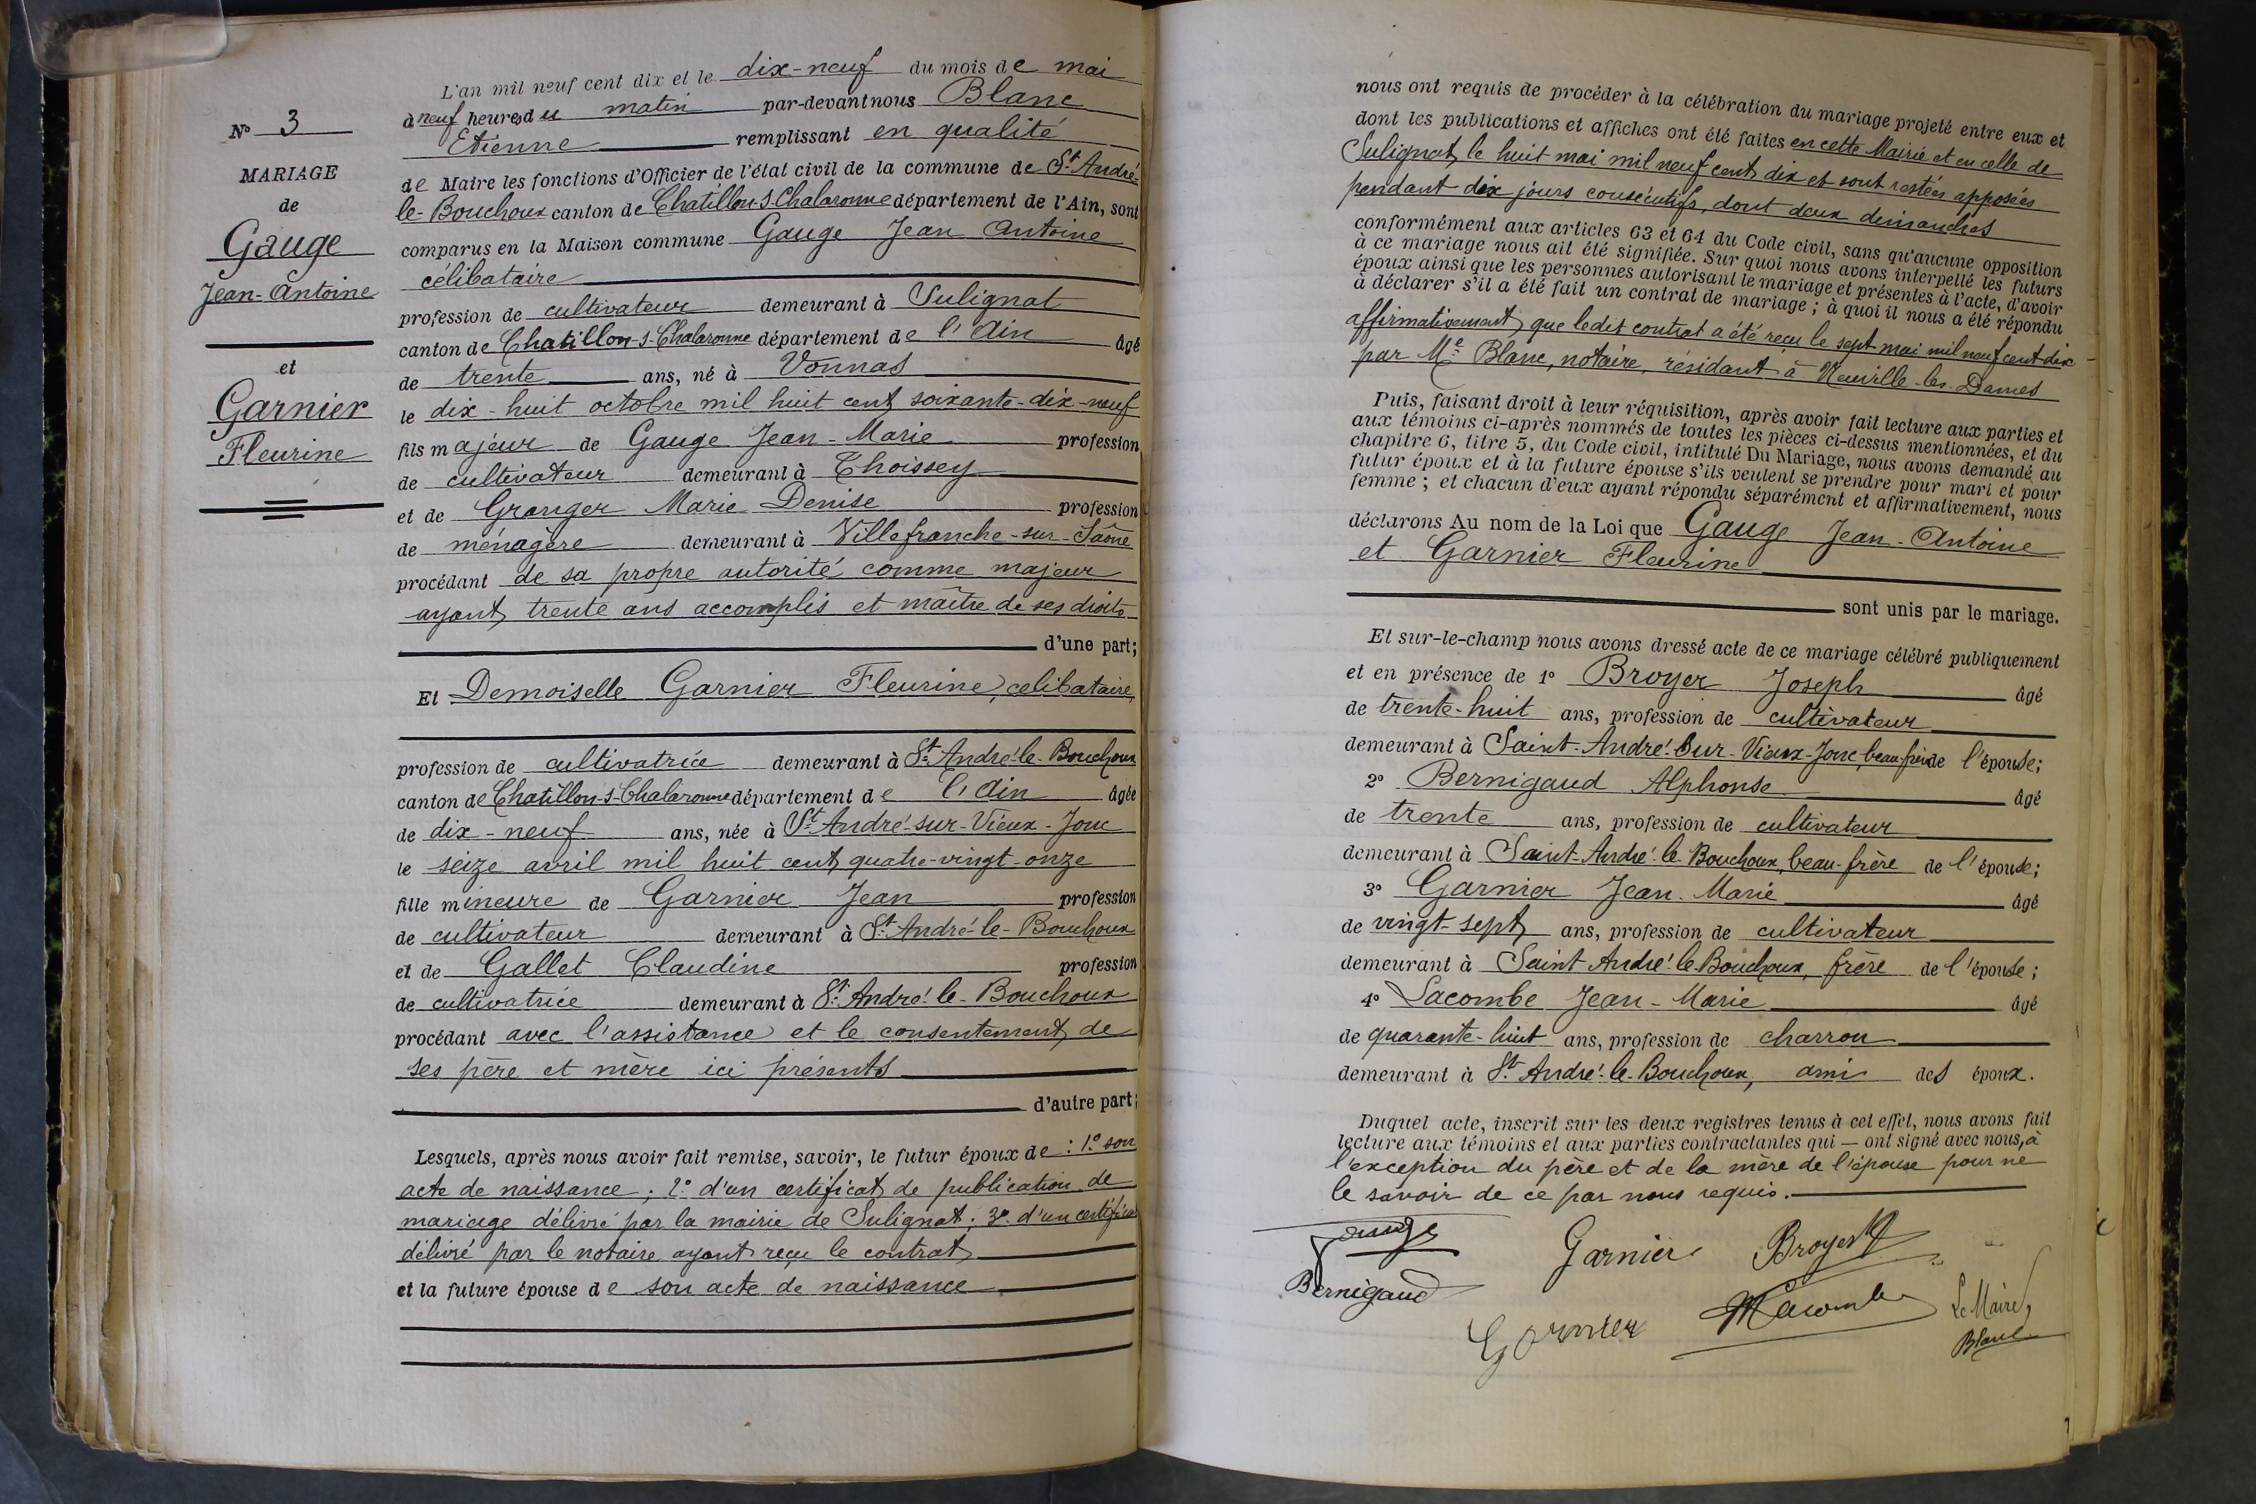 N° 3
MARIAGE
de
Gauge
Jean-Antoine
et
Garnier
Fleurine
L'an mil neuf cent dix et le dix-neuf du mois de mai
à neuf heures du matin par-devant nous Blanc
Etienne remplissant en qualité
de Maire les fonctions d'Officier de l'état civil de la commune de St. André-
le-Bouchoux canton de Chatillon-s-Chalaronne département de l'Ain, sont
comparus en la Maison commune Gauge Jean Antoine
célibataire
profession de cultivateur demeurant à Sulignat
canton de Chatillon-s-Chalaronne département de l'Ain âgé
de trente ans, né à Vonnas
le dix-huit octobre mil huit cent soixante-dix-neuf
fils majeur de Gauge Jean-Marie profession
de cultivateur demeurant à Thoissey
et de Granger Marie Denise profession
de ménagère demeurant à Villefranche-sur-Saône
procédant de sa propre autorité comme majeur
ayant trente ans accomplis et maître de ses droits
d'une part;
Et Demoiselle Garnier Fleurine, celibataire,
profession de cultivatrice demeurant à St. André-le-Bouchoux
canton de Chatillon-s-Chalaronne département de l'Ain âgée
de dix-neuf ans, née à St. André-sur-Vieux-Jonc
le seize avril mil huit cent quatre-vingt-onze
fille mineure de Garnier Jean profession
de cultivateur demeurant à St. André-le-Bouchoux
et de Gallet Claudine profession
de cultivatrice demeurant à St. André-le-Bouchoux
procédant avec l'assistance et le consentement de
ses père et mère ici présents
d'autre part;
Lesquels, après nous avoir fait remise, savoir, le futur époux de : 1° son
acte de naissance ; 2° d'un certificat de publication de
mariage délivré par la mairie de Sulignat ; 3° d'un certificat
délivré par le notaire ayant reçu le contrat
et la future épouse de son acte de naissance
nous ont requis de procéder à la célébration du mariage projeté entre eux et
dont les publications et affiches ont été faites en cette Mairie et en celle de
Sulignat le huit mai mil neuf cent dix et sont restées apposées
pendant dix jours consécutifs, dont deux dimanches
conformément aux articles 63 et 64 du Code civil, sans qu'aucune opposition
à ce mariage nous ait été signifiée. Sur quoi nous avons interpellé les futurs
époux ainsi que les personnes autorisant le mariage et présentes à l'acte, d'avoir
à déclarer s'il a été fait un contrat de mariage ; à quoi il nous a été répondu
affirmativement que ledit contrat a été reçu le sept mai mil neuf cent dix
par Me Blanc, notaire, résidant à Neuville-les-Dames
Puis, faisant droit à leur réquisition, après avoir fait lecture aux parties et
aux témoins ci-après nommés de toutes les pièces ci-dessus mentionnées, et du
chapitre 6, titre 5, du Code civil, intitulé Du Mariage, nous avons demandé au
futur époux et à la future épouse s'ils veulent se prendre pour mari et pour
femme ; et chacun d'eux ayant répondu séparément et affirmativement, nous
déclarons Au nom de la Loi que Gauge Jean-Antoine
et Garnier Fleurine
sont unis par le mariage.
Et sur-le-champ nous avons dressé acte de ce mariage célébré publiquement
et en présence de 1° Broyer Joseph âgé
de trente-huit ans, profession de cultivateur
demeurant à Saint-André-Sur-Vieux-Jonc, beau-frère de l'épouse ;
2° Bernigaud Alphonse âgé
de trente ans, profession de cultivateur
demeurant à Saint-André-le-Bouchoux, beau-frère de l'épouse ;
3° Garnier Jean-Marie âgé
de vingt-sept ans, profession de cultivateur
demeurant à Saint André-le-Bouchoux, frère de l'épouse ;
4° Lacombe Jean-Marie âgé
de quarante-huit ans, profession de charron
demeurant à St. André-le-Bouchoux, ami des époux.
Duquel acte, inscrit sur les deux registres tenus à cet effet, nous avons fait
lecture aux témoins et aux parties contractantes qui — ont signé avec nous, à
l'exception du père et de la mère de l'épouse pour ne
le savoir de ce par nous requis.
Gauge Garnier Broyer
Bernigaud
Garnier Lacombe Le Maire,
Blanc